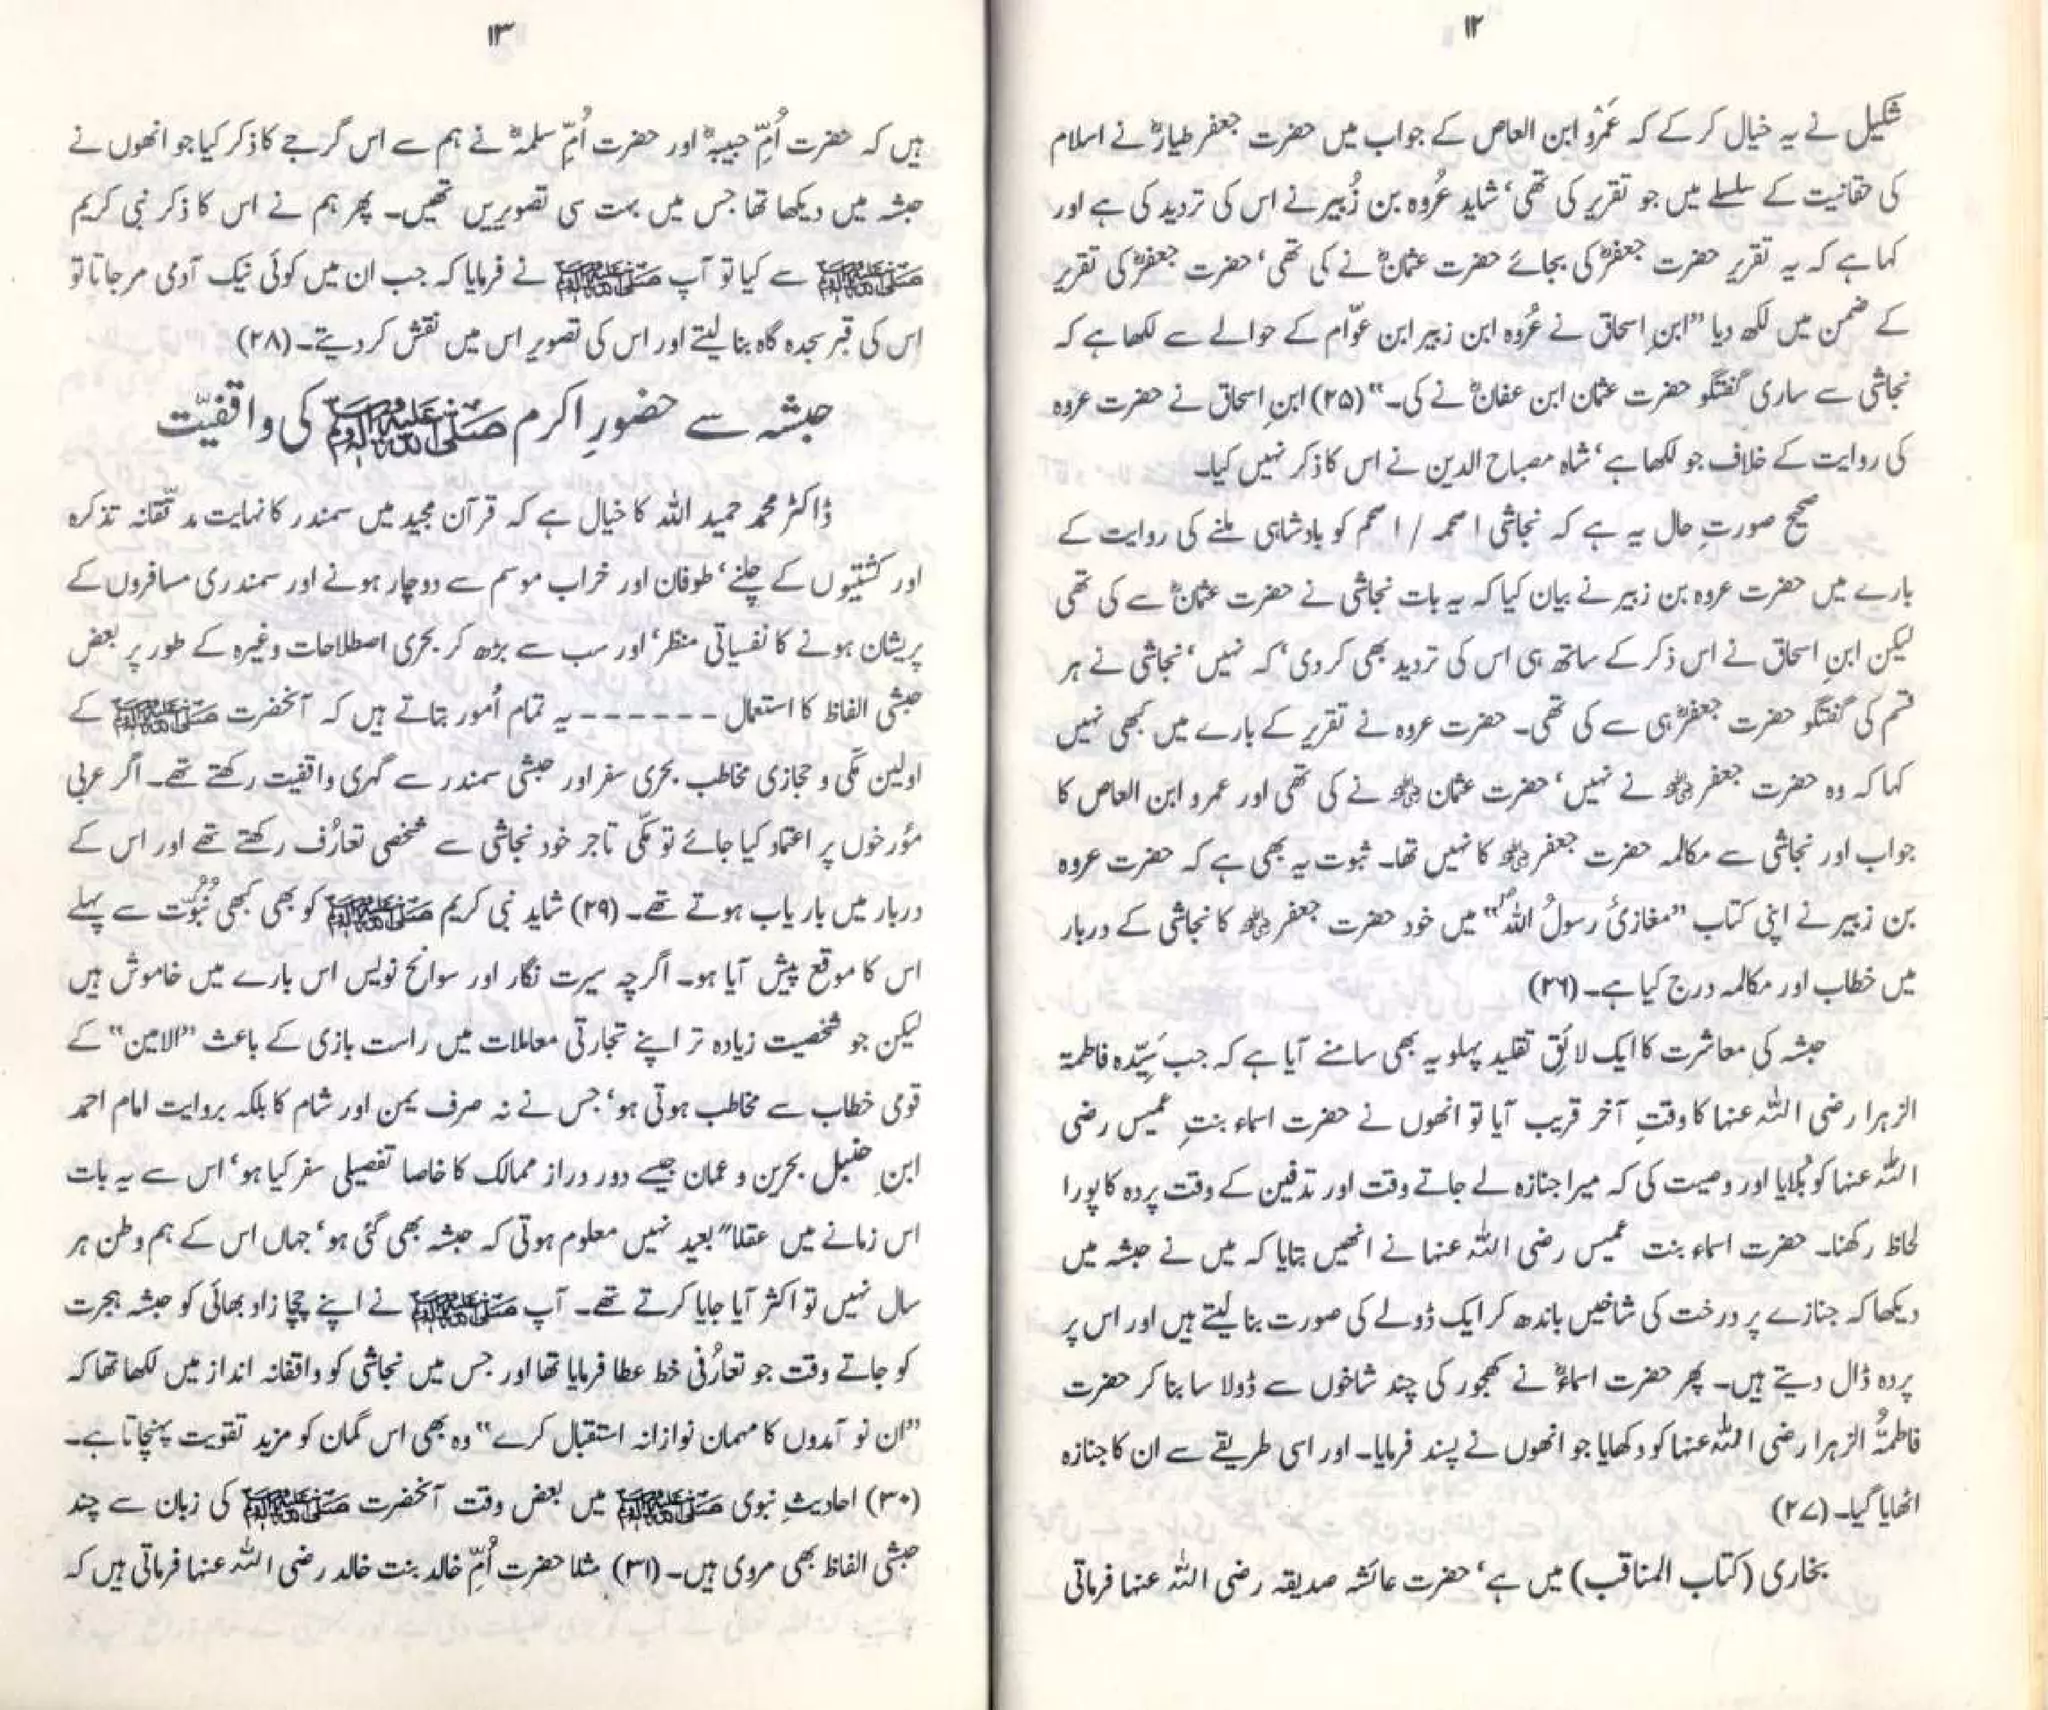 ۱۲
شکیل نے یہ خیال کر کے کہ عَمْرو ابن العاص کے جواب میں حضرت جعفر طیارؓ نے اسلام
کی حقانیت کے سلسلے میں جو تقریر کی تھی‘ شاید عُروہ بن زُبیر نے اس کی تردید کی ہے اور
کہا ہے کہ یہ تقریر حضرت جعفرؓ کی بجائے حضرت عثمانؓ نے کی تھی‘ حضرت جعفرؓ کی تقریر
کے ضمن میں لکھ دیا ”ابنِ اسحاق نے عُروہ ابن زبیر ابن عوّام کے حوالے سے لکھا ہے کہ
نجاشی سے ساری گفتگو حضرت عثمان ابن عفانؓ نے کی۔“ (۲۵) ابنِ اسحاق نے حضرت عروہ
کی روایت کے خلاف جو لکھا ہے‘ شاہ مصباح الدین نے اس کا ذکر نہیں کیا۔
صحیح صورتِ حال یہ ہے کہ نجاشی اصحمہ / اصحم کو بادشاہی ملنے کی روایت کے
بارے میں حضرت عروہ بن زبیر نے بیان کیا کہ یہ بات نجاشی نے حضرت عثمانؓ سے کی تھی
لیکن ابنِ اسحاق نے اس ذکر کے ساتھ ہی اس کی تردید بھی کر دی‘ کہ نہیں‘ نجاشی نے ہر
قسم کی گفتگو حضرت جعفرؓ ہی سے کی تھی۔ حضرت عروہ نے تقریر کے بارے میں کبھی نہیں
کہا کہ وہ حضرت جعفر رضی اللہ عنہ نے نہیں‘ حضرت عثمان رضی اللہ عنہ نے کی تھی اور عمرو ابن العاص کا
جواب اور نجاشی سے مکالمہ حضرت جعفر رضی اللہ عنہ کا نہیں تھا۔ ثبوت یہ بھی ہے کہ حضرت عروہ
بن زبیر نے اپنی کتاب ”مغازیٔ رسولُ اللہؐ“ میں خود حضرت جعفر رضی اللہ عنہ کا نجاشی کے دربار
میں خطاب اور مکالمہ درج کیا ہے۔ (۲۶)
حبشہ کی معاشرت کا ایک لائقِ تقلید پہلو یہ بھی سامنے آیا ہے کہ جب سَیِّدہ فاطمۃ
الزہرا رضی اللہ عنہا کا وقتِ آخر قریب آیا تو انھوں نے حضرت اسماء بنتِ عمیس رضی
اللہ عنہا کو بُلایا اور وصیت کی کہ میرا جنازہ لے جاتے وقت اور تدفین کے وقت پردہ کا پورا
لحاظ رکھنا۔ حضرت اسماء بنت عمیس رضی اللہ عنہا نے انھیں بتایا کہ میں نے حبشہ میں
دیکھا کہ جنازے پر درخت کی شاخیں باندھ کر ایک ڈولے کی صورت بنا لیتے ہیں اور اس پر
پردہ ڈال دیتے ہیں۔ پھر حضرت اسماءؓ نے کھجور کی چند شاخوں سے ڈولا سا بنا کر حضرت
فاطمۃُ الزہرا رضی اللہ عنہا کو دکھایا جو انھوں نے پسند فرمایا۔ اور اسی طریقے سے ان کا جنازہ
اٹھایا گیا۔ (۲۷)
بخاری (کتاب المناقب) میں ہے‘ حضرت عائشہ صدیقہ رضی اللہ عنہا فرماتی
۱۳
ہیں کہ حضرت اُمِّ حبیبہؓ اور حضرت اُمِّ سلمہؓ نے ہم سے اس گرجے کا ذکر کیا جو انھوں نے
حبشہ میں دیکھا تھا جس میں بہت سی تصویریں تھیں۔ پھر ہم نے اس کا ذکر نبی کریم
صلی اللہ علیہ وآلہ وسلم سے کیا تو آپ صلی اللہ علیہ وآلہ وسلم نے فرمایا کہ جب ان میں کوئی نیک آدمی مر جاتا تو
اس کی قبر سجدہ گاہ بنا لیتے اور اس کی تصویر اس میں نقش کر دیتے۔ (۲۸)
حبشہ سے حضورِ اکرم صلی اللہ علیہ وآلہ وسلم کی واقفیّت
ڈاکٹر محمد حمید اللہ کا خیال ہے کہ قرآن مجید میں سمندر کا نہایت مدقّقانہ تذکرہ
اور کشتیوں کے چلنے‘ طوفان اور خراب موسم سے دوچار ہونے اور سمندری مسافروں کے
پریشان ہونے کا نفسیاتی منظر‘ اور سب سے بڑھ کر بحری اصطلاحات وغیرہ کے طور پر بعض
حبشی الفاظ کا استعمال ------ یہ تمام اُمور بتاتے ہیں کہ آنحضرت صلی اللہ علیہ وآلہ وسلم کے
اولین مکّی و حجازی مخاطب بحری سفر اور حبشی سمندر سے گہری واقفیت رکھتے تھے۔ اگر عربی
مؤرخوں پر اعتماد کیا جائے تو مکّی تاجر خود نجاشی سے شخصی تعارُف رکھتے تھے اور اس کے
دربار میں باریاب ہوتے تھے۔ (۲۹) شاید نبی کریم صلی اللہ علیہ وآلہ وسلم کو بھی کبھی نُبُوّت سے پہلے
اس کا موقع پیش آیا ہو۔ اگرچہ سیرت نگار اور سوانح نویس اس بارے میں خاموش ہیں
لیکن جو شخصیت زیادہ تر اپنے تجارتی معاملات میں راست بازی کے باعث ”الامین“ کے
قومی خطاب سے مخاطب ہوتی ہو‘ جس نے نہ صرف یمن اور شام کا بلکہ بروایت امام احمد
ابنِ حنبل بحرین و عمان جیسے دور دراز ممالک کا خاصا تفصیلی سفر کیا ہو‘ اس سے یہ بات
اس زمانے میں عقلاً بعید نہیں معلوم ہوتی کہ حبشہ بھی گئی ہو‘ جہاں اس کے ہم وطن ہر
سال نہیں تو اکثر آیا جایا کرتے تھے۔ آپ صلی اللہ علیہ وآلہ وسلم نے اپنے چچا زاد بھائی کو حبشہ ہجرت
کو جاتے وقت جو تعارُفی خط عطا فرمایا تھا اور جس میں نجاشی کو واقفانہ انداز میں لکھا تھا کہ
”ان نو آمدوں کا مہمان نوازانہ استقبال کرے“ وہ بھی اس گمان کو مزید تقویت پہنچاتا ہے۔
(۳۰) احادیثِ نبوی صلی اللہ علیہ وآلہ وسلم میں بعض وقت آنحضرت صلی اللہ علیہ وآلہ وسلم کی زبان سے چند
حبشی الفاظ بھی مروی ہیں۔ (۳۱) مثلا حضرت اُمِّ خالد بنت خالد رضی اللہ عنہا فرماتی ہیں کہ